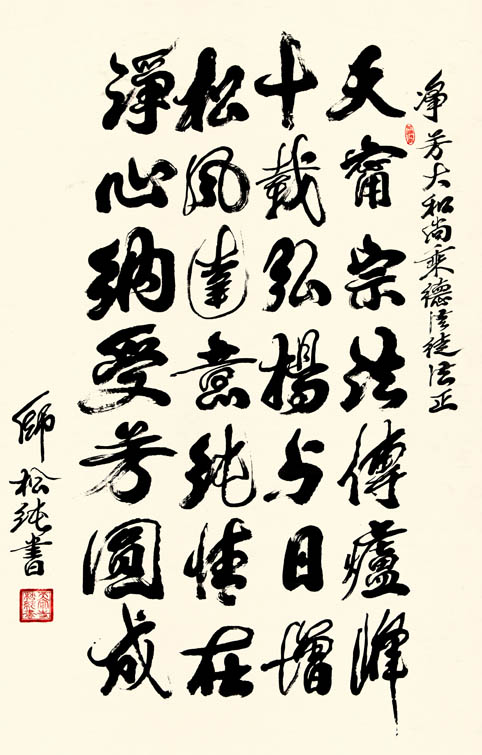 净芳大和尚乘德法徒法正
天甯宗法傳爐峰
十載弘揚与日增
松風達意纯情在
淨心納受芳圓成
師松纯書